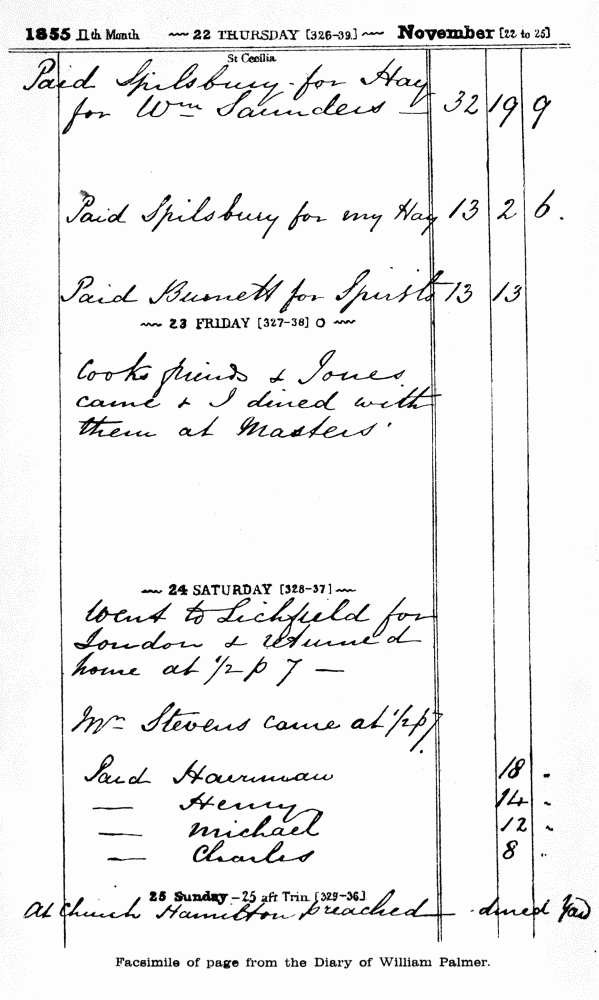 1855 11th Month ~~ 22 THURSDAY [326-39] ~~ November [22 to 25]
St Cecilia
Paid Spilsbury for Hay
for Wm Saunders — 32 19 9
Paid Spilsbury for my Hay 13 2 6.
Paid Burnett for Spirits 13 13
~~ 23 FRIDAY [327-38] O ~~
Cooks friends & Jones
came & I dined with
them at Masters'
~~ 24 SATURDAY [328-37] ~~
Went to Lichfield for
London & returned
home at 1/2 p 7 —
Mr Stevens came at 1/2 p 7.
Paid Harriman 18 "
— Henry 14 "
— Michael 12 "
— Charles 8 "
25 Sunday – 25 aft Trin [329-36]
At Church Hamilton preached — dined Yard
Facsimile of page from the Diary of William Palmer.